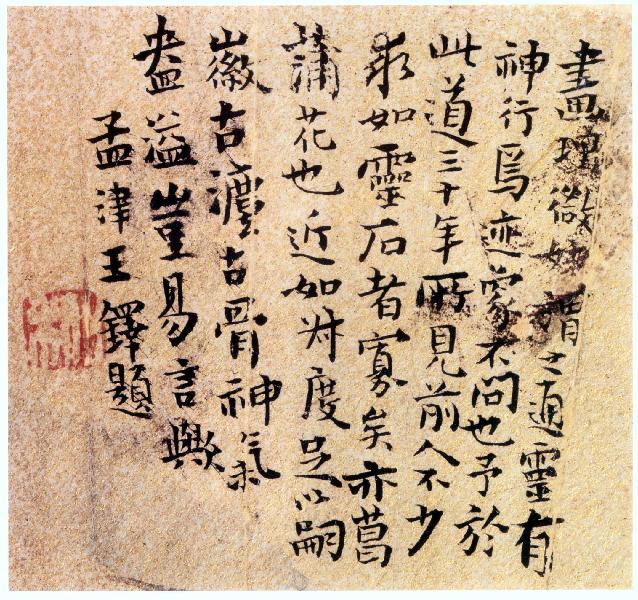 畫理微妙謂之通靈有
神行焉迹象不問也予於
此道三十年所見前人不少
求如靈石者寡矣亦菖
蒲花也近如叔度足以嗣
徽古古骨神氣
盎溢豈易言歟
孟津王鐸題